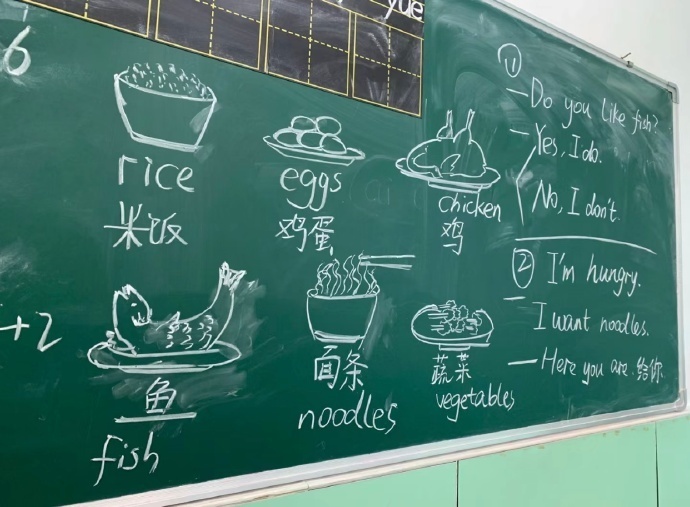 yue
6
rice
米饭
eggs
鸡蛋
chicken
鸡
鱼
fish
面条
noodles
蔬菜
vegetables
+2
①
— Do you like fish?
— Yes, I do.
No, I don't.
② I'm hungry.
I want noodles.
— Here you are. 给你